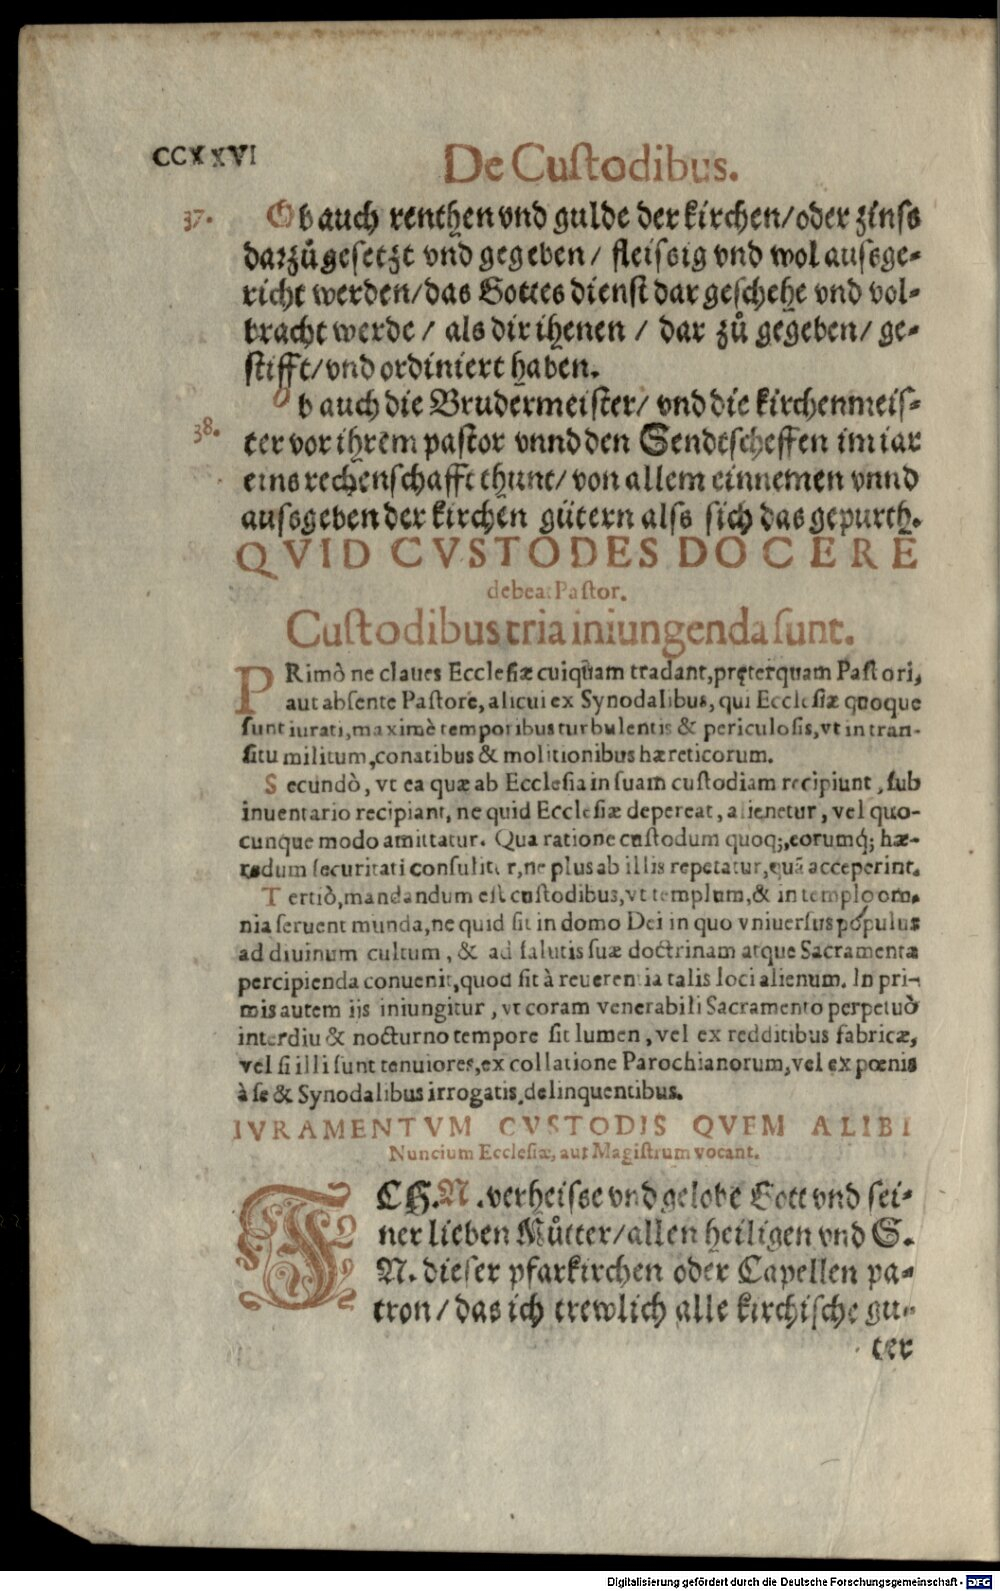 CCXXVI
De Cuſtodibus.
37. Ob auch renthen vnd gulde der kirchen/oder zinſs
darzů geſetzt vnd gegeben/ fleiſsig vnd wol auſsge-
richt werden/das Gottes dienſt dar geſchehe vnd vol-
bracht werde / als dir ihenen / dar zů gegeben/ ge-
ſtifft/vnd ordiniert haben.
Ob auch die Brudermeiſter/ vnd die kirchenmeiſ-
38. ter vor ihrem paſtor vnnd den Sendtſcheffen im iar
eins rechenſchafft thunt/ von allem einnemen vnnd
auſsgeben der kirchen gütern alſs ſich das gepurth.
QVID CVSTODES DOCERE
debeat Paſtor.
Cuſtodibus tria iniungenda ſunt.
PRimò ne claues Eccleſiæ cuiquam tradant, pręterquam Paſtori,
aut abſente Paſtore, alicui ex Synodalibus, qui Eccleſiæ quoque
ſunt iurati, maximè temporibus turbulentis & periculoſis, vt in tran-
ſitu militum, conatibus & molitionibus hæreticorum.
Secundò, vt ea quæ ab Eccleſia in ſuam cuſtodiam recipiunt, ſub
inuentario recipiant, ne quid Eccleſiæ depereat, alienetur, vel quo-
cunque modo amittatur. Qua ratione cuſtodum quoq;, eorumq́; hæ-
redum ſecuritati conſulitur, ne plus ab illis repetatur, quã acceperint.
Tertiò, mandandum eſt cuſtodibus, vt templum, & in templo om-
nia ſeruent munda, ne quid ſit in domo Dei in quo vniuerſus populus
ad diuinum cultum, & ad ſalutis ſuæ doctrinam atque Sacramenta
percipienda conuenit, quod ſit à reuerentia talis loci alienum. In pri-
mis autem ijs iniungitur, vt coram venerabili Sacramento perpetuò
interdiu & nocturno tempore ſit lumen, vel ex redditibus fabricæ,
vel ſi illi ſunt tenuiores, ex collatione Parochianorum, vel ex pœnis
à ſe & Synodalibus irrogatis, delinquentibus.
IVRAMENTVM CVSTODIS QVEM ALIBI
Nuncium Eccleſiæ, aut Magiſtrum vocant.
ICH. N. verheiſse vnd gelobe Gott vnd ſei-
ner lieben Můtter/allen heiligen vnd S.
N. dieſer pfarkirchen oder Capellen pa-
tron/ das ich trewlich alle kirchiſche gu-
ter
Digitalisierung gefördert durch die Deutsche Forschungsgemeinschaft - DFG